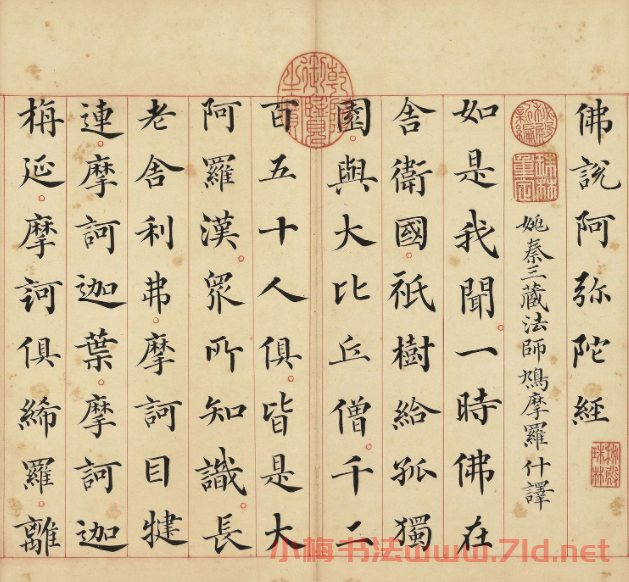 佛說阿弥陀經
秘殿珠林
秘殿新編
珠林重定
姚秦三藏法師鳩摩羅什譯
如是我聞。一時佛在
舍衛國。祇樹給孤獨
園。與大比丘僧。千二
乾隆御覽之寶
百五十人俱。皆是大
阿羅漢。眾所知識。長
老舍利弗。摩訶目犍
連。摩訶迦葉。摩訶迦
栴延。摩訶俱絺羅。離
小梅书法www.7ld.net